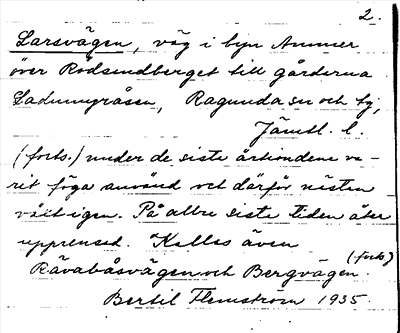 2.
Larsvägen, väg i byn Ammer
över Rödsandberget till gårderna
Ladumyråsen, Ragunda sn och tg,
Jämtl. l.
(forts.) under de siste årtiondena va-
rit föga använd och därför nästen
växt igen. På allre siste tiden åter
upprensed. Kalles även
(forts)
Rävabåsvägen och Bergvägen.
Bertil Flemström 1935.